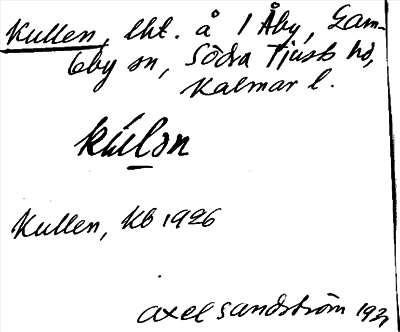 Kullen, lht. å 1 Åby, Gam-
leby sn, Södra Tjusts hd,
Kalmar l.
kúlən
Kullen, Kb 1926
Axel Sandström